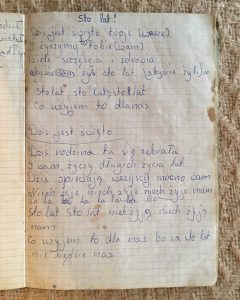 Sto lat!
Dziś jest święto twoje (wasze)
życzymy tobie (wam)
szczęścia i zdrowia
sto lat (abyście żyli)
Sto lat sto lat sto lat
Co użyjem to dla nas
Dziś jest święto
Dziś rodzina tu się zebrała
i wam życzy długich życia lat
Dziś śpiewają wszyscy mocno wam
Niech żyje, niech żyje niech żyją nam
la la la la la la la
Sto lat sto lat niech żyją niech żyją
nam
Co użyjem to dla nas bo za sto lat
nie będzie nas